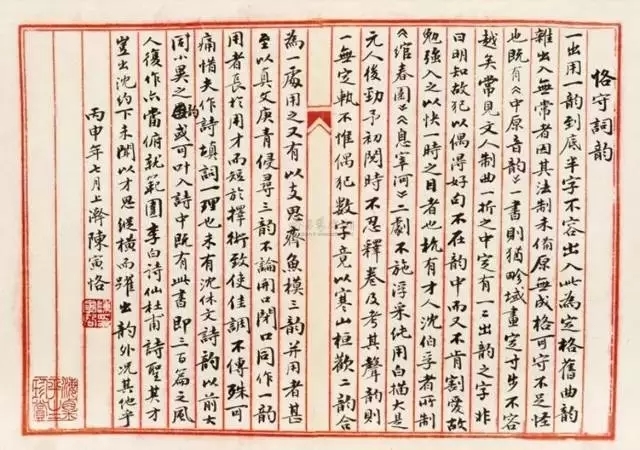 恪守詞韻
一出用一韻到底半字不容出入此為定格舊曲韻
雜出入無常者因其法制未備原無成格可守不足怪
也既有《中原音韻》一書則猶畛域畫定寸步不容
越矣常見文人制曲一折之中定有一二出韻之字非
曰明知故犯以偶得好句不在韻中而又不肯割愛故
勉強入之以快一時之目者也杭有才人沈伯孚者所制
《綰春園》《息宰河》二劇不施浮采純用白描大是
元人後勁予初閱時不忍釋卷及考其聲韻則
一無定執不惟偶犯數字竟以寒山桓歡二韻合
為一處用之又有以支思齊魚模三韻並用者甚
至以真文庚青侵尋三韻不論開口閉口同作一韻
用者長於用才而短於擇術致使佳調不傳殊可
痛惜夫作詩填詞一理也未有沈休文詩韻以前大
同小異之韻或可叶入詩中既有此書即三百篇之風
人復作亦當俯就範圍李白詩仙杜甫詩聖其才
豈出沈約下未聞以才思縱橫而躍出韻外況其他乎
丙申年七月上澣陳寅恪